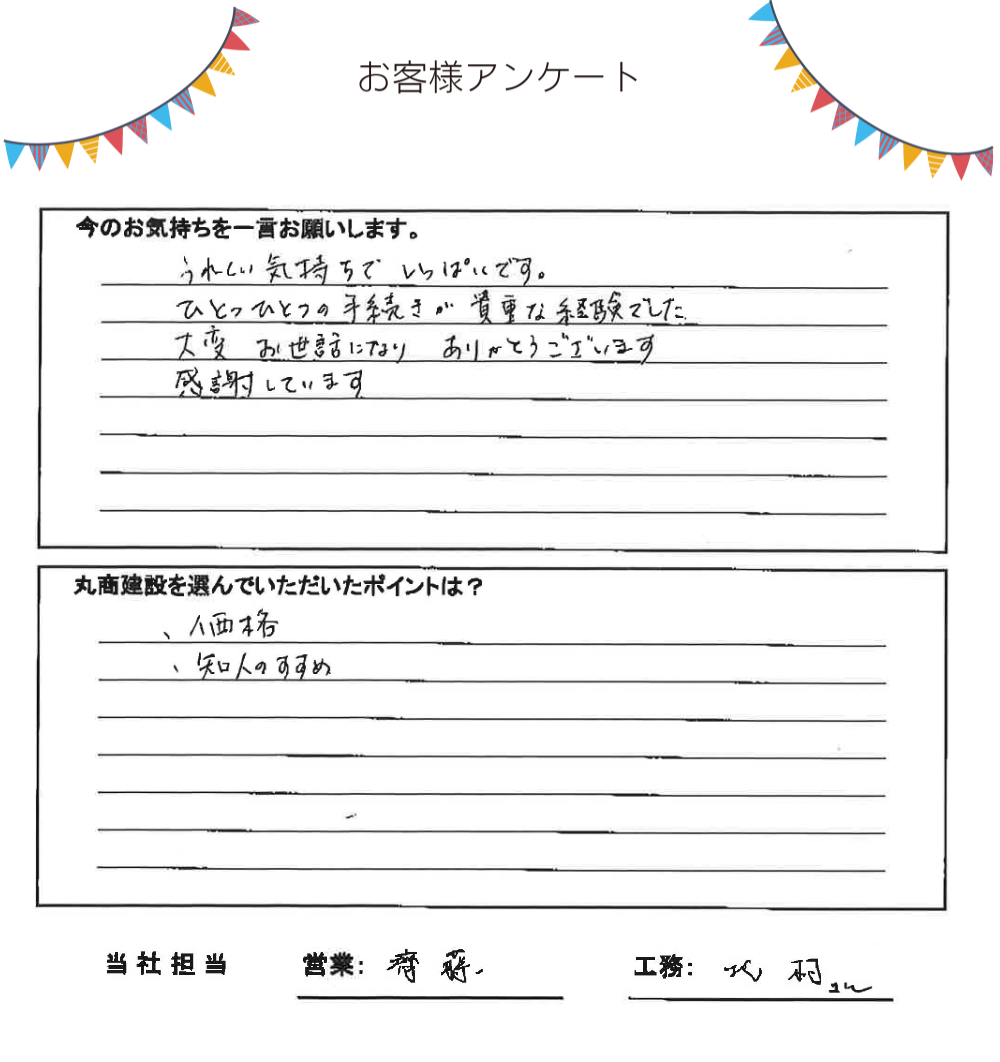 お客様アンケート
今のお気持ちを一言お願いします。
うれしい気持ちでいっぱいです。
ひとつひとつの手続きが貴重な経験でした
大変 お世話になり ありがとうございます
感謝しています
丸商建設を選んでいただいたポイントは？
、価格
、知人のすすめ
当社担当 営業： 齊藤 工務： 村さん